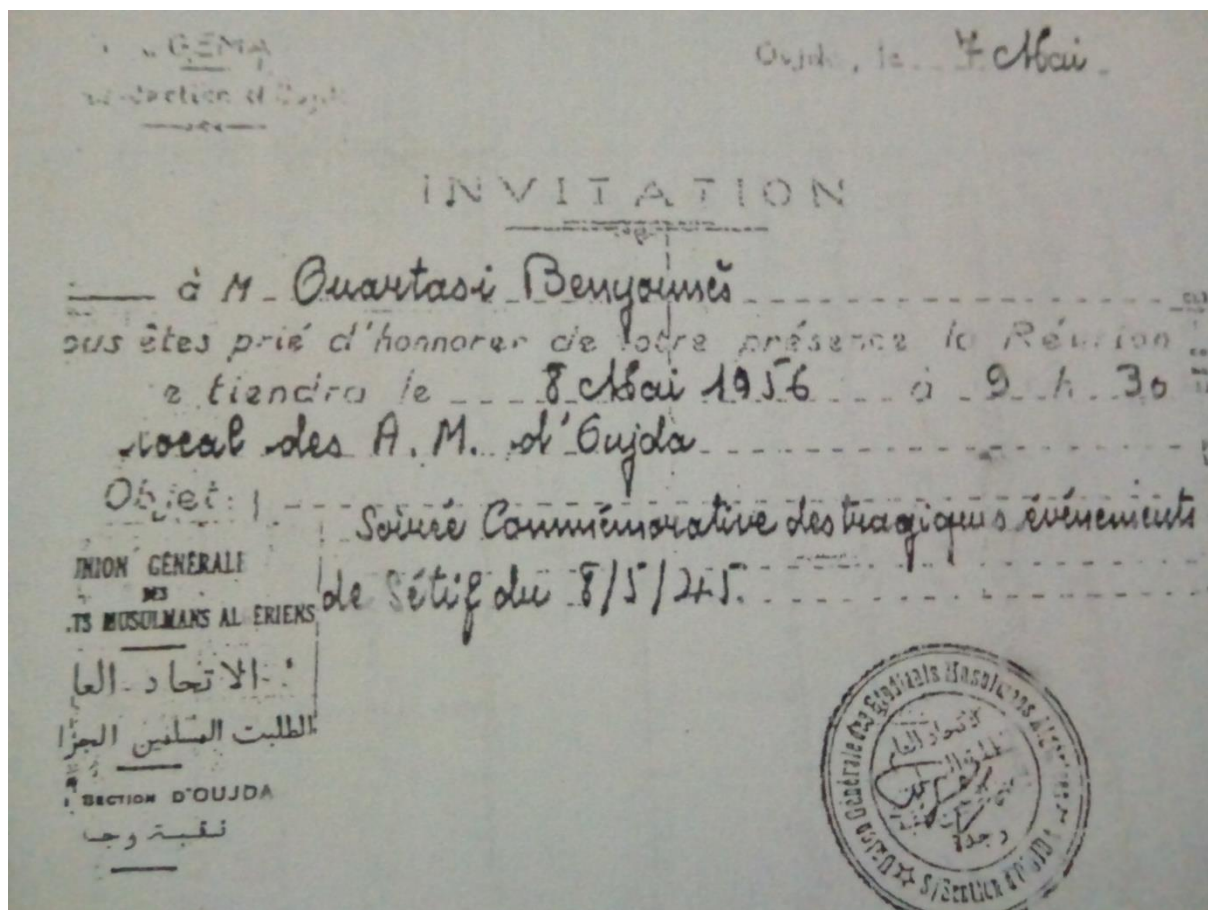 GEMA
Oujda, le 7 Mai
section d'Oujda
INVITATION
à M Ouartasi Benyounès
ous êtes prié d'honnorer de votre présence la Réunion
e tiendra le 8 Mai 1956 à 9 h 30
local des A.M. d'Oujda
Objet :
Soirée Commémorative des tragiques événements
de Sétif du 8/5/45.
UNION GÉNÉRALE
DES
TS MUSULMANS ALGERIENS
الاتحاد العا
الطلبت المسلمين الجزا
SECTION D'OUJDA
Union Générale des Etudiants Musulmans Algériens
الاتحاد العام
وجدة
S/Section d'OUJDA